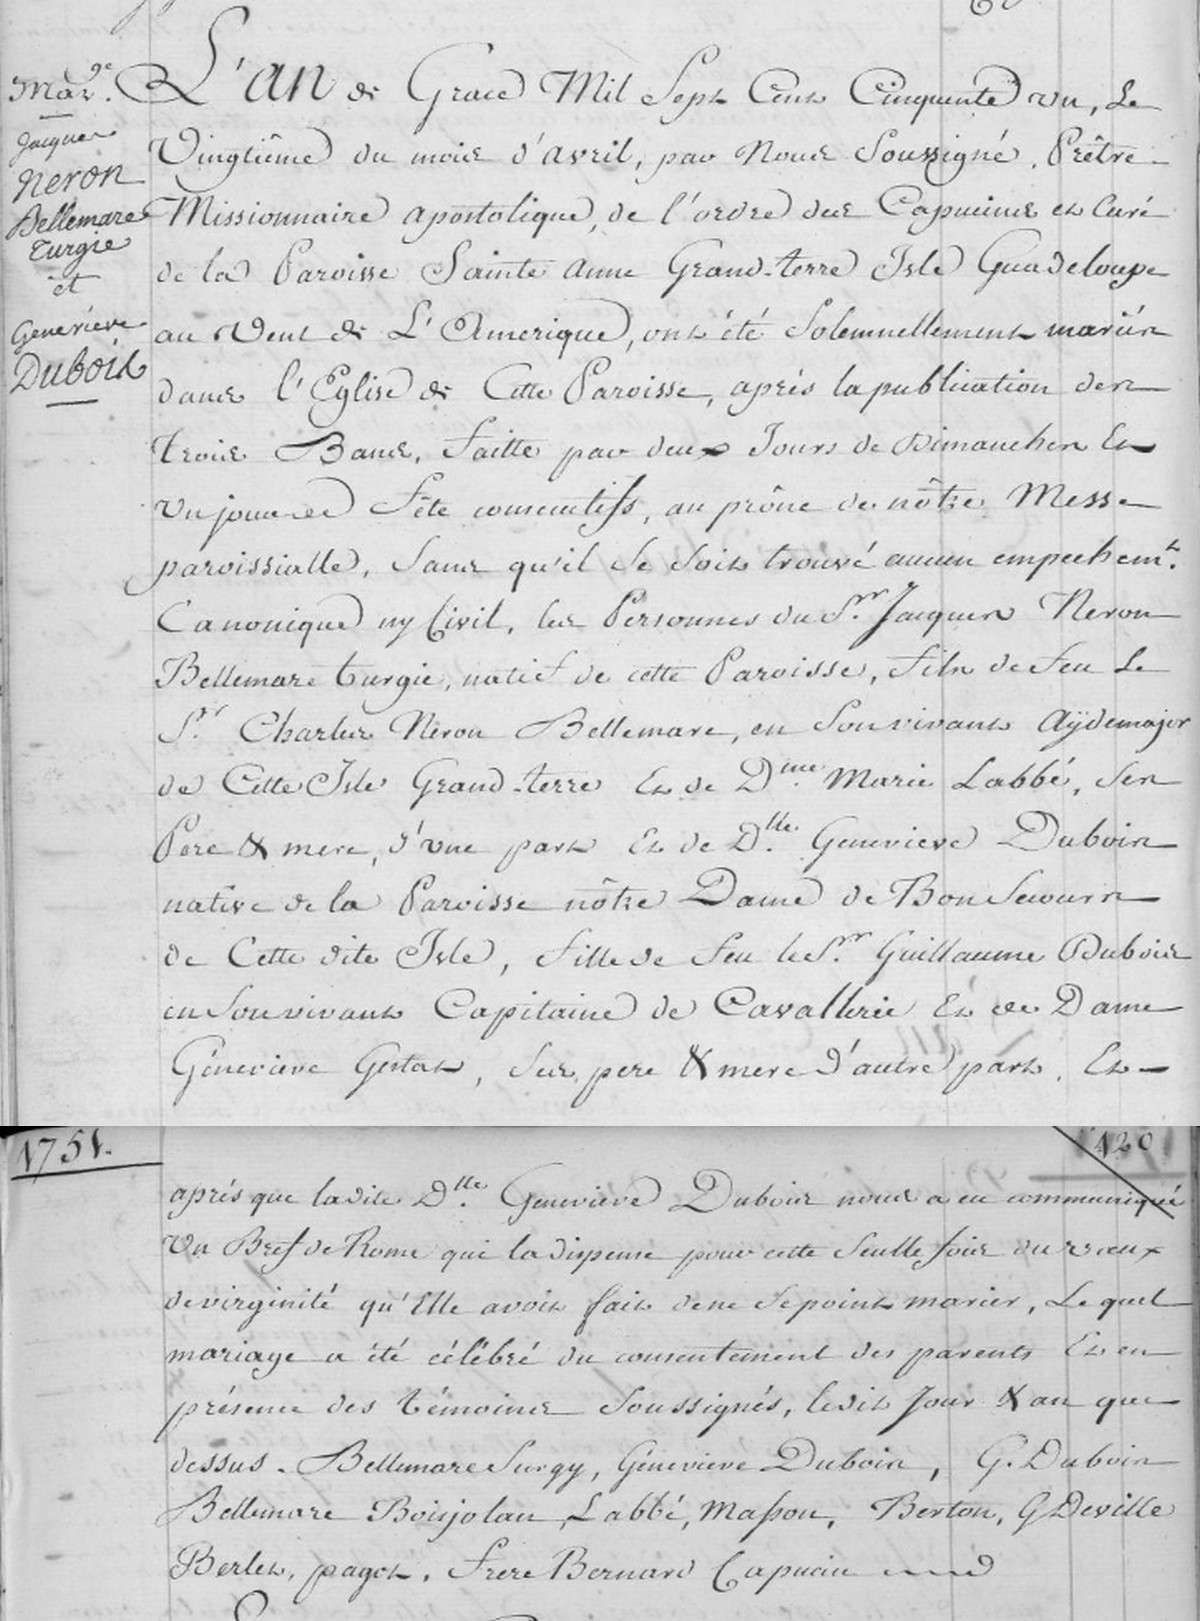 Mar.ge
Jacques
Neron
Bellemare
Turgie
et
Genevieve
Dubois
L'an de Grace Mil Sept Cent Cinquente un, Le
Vingtiême du mois d'avril, par Nous Soussigné, Prêtre
Missionnaire apostolique, de l'ordre des Capucins et Curé
de la Paroisse Sainte Anne Grand-terre Isle Guadeloupe
au Vent de L'Amerique, ont été Solemnellement mariés
dans l'Eglise de Cette Paroisse, aprés la publication des
trois Bans, faitte par deux Jours de Dimanches Et
un jour de Fête consecutifs, au prône de nôtre Messe
paroissialle, Sans qu'il Se Soit trouvé aucun empechem.t
Canonique ny Civil, les Personnes du S.r Jacques Neron
Bellemare turgie, natif de cette Paroisse, fils de feu Le
S.r Charles Neron Bellemare, en Son vivant Aÿdemajor
de Cette Isle Grand-terre Et de D.me Marie Labbé, Ses
Pere & mere, d'une part Et de D.lle Genevieve Dubois
native de la Paroisse nôtre Dame de Bon Secours
de Cette dite Isle, fille de feu le S.r Guillaume Dubois
en Son vivant Capitaine de Cavallerie Et de Dame
Géneviéve Gestat, Ses pere & mere d'autre part, Et
1751.
120
aprés que ladite D.lle Geneviéve Dubois nous a eu communiqué
Un Bref de Rome qui la dispense pour cette Seulle fois du vœux
de virginité qu'Elle avoit fait de ne Se point marier, Le quel
mariage a été célébré du consentement des parents Et en
présence des témoins Soussignés, ledit Jour & an que
dessus. Bellemare Surgy, Géneviéve Dubois, G. Dubois
Bellemare Boisjolan, Labbé, Masson, Berton, G Deville
Berlet, paget, frere Bernard Capucin